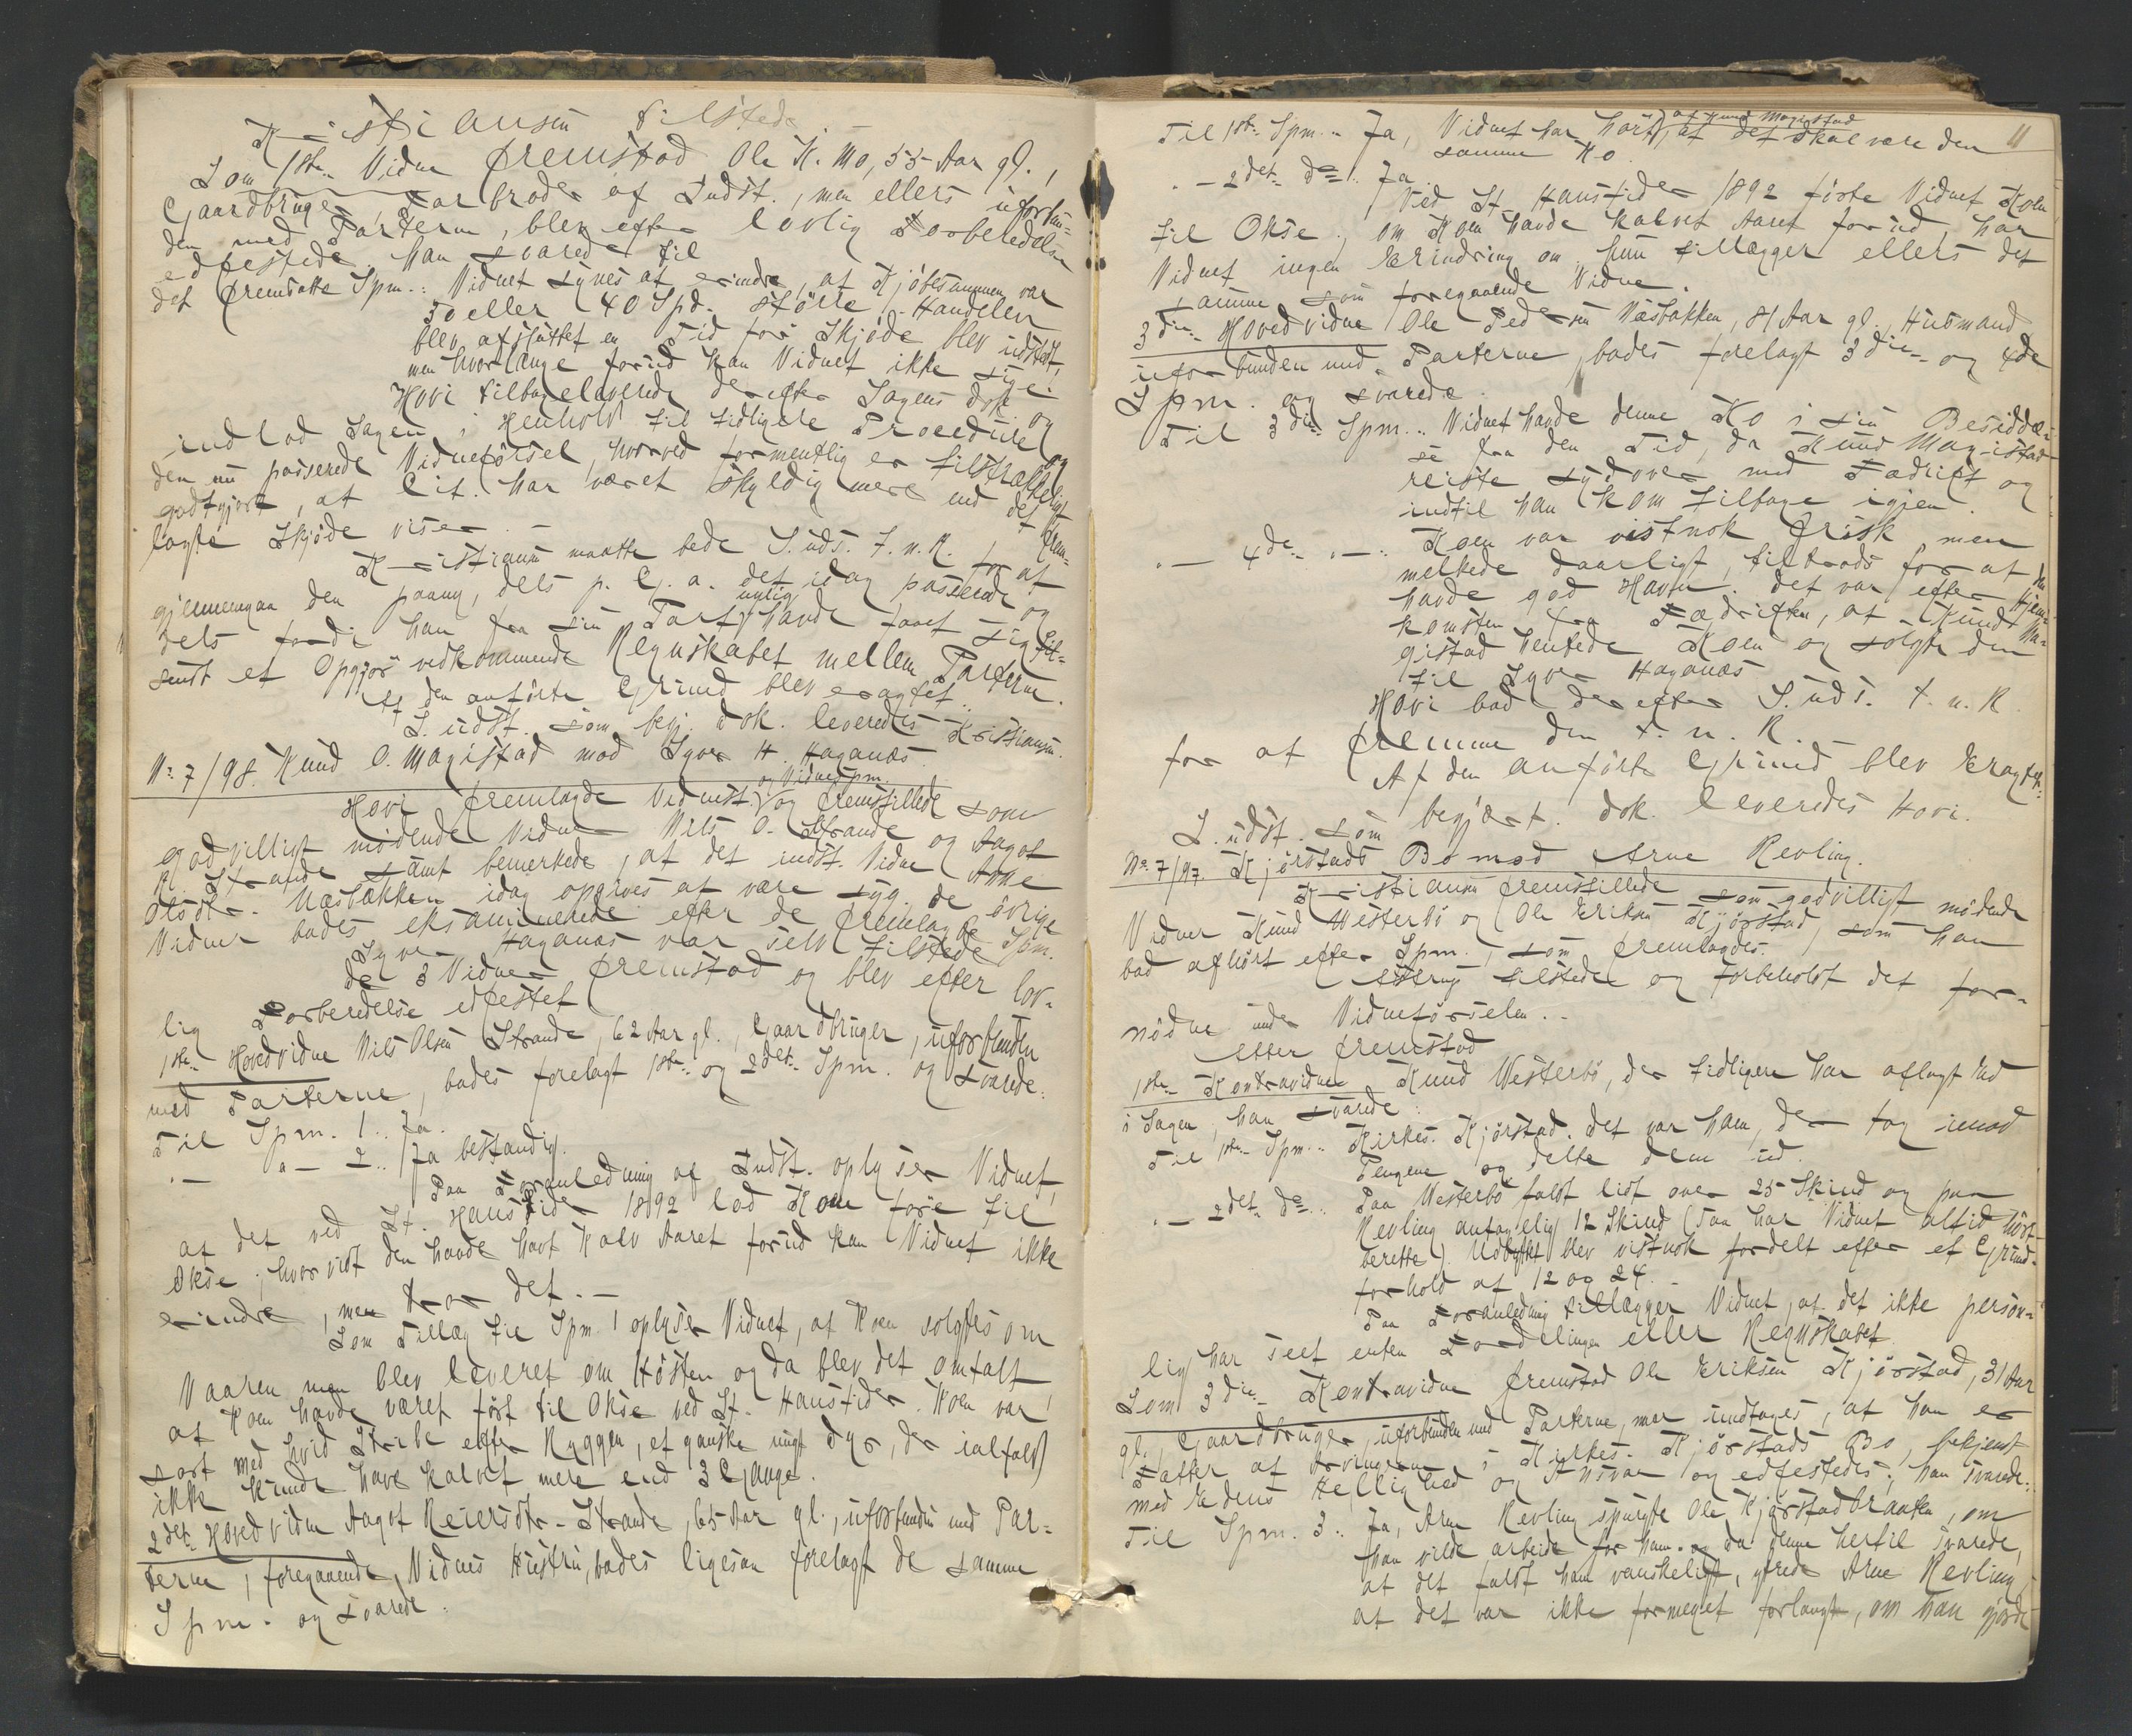 Kristiansen tilstede.
Som 1ste Vidne fremstod Ole K. Mo, 55 Aar gl.,
Gaardbruger, Farbroder af Indst., men ellers uforbun-
den med Parterne, blev efter lovlig Forberedelse
edfestede. Han svarede til
det fremsatte Spm.: Vidnet synes at erindre, at Kjøbesummen var
30 eller 40 Spd. større. Handelen
blev afsluttet en Tid før Skjøde blev udstedt,
men hvorlænge forud kan Vidnet ikke sige.
Hovi tilbageleverede derefter Sagens Dok. og
indlod Sagen i Henhold til tidligere Procedure og
den nu passerede Vidneførsel, hvorved formentlig er tilstrækkeligt
godtgjort, at Cit. har været skyldig mere end det frem-
lagte Skjøde viser. —
Kristiansen maatte bede S. uds. t. n. R. for at
gjennemgaa den paany, dels p. G. a. det idag passerede og
dels fordi han fra sin Part nylig havde faaet sig til-
sendt et Opgjør vedkommende Regnskabet mellem Parterne.
Af den anførte Grund blev eragtet:
S. udst. som begj. Dok. leveredes Kristiansen.
No 7/98. Knud O. Magistad mod Syver H. Haganæs.
Hovi fremlagde Vidnest. og Vidnespm. og fremstillede som
godvilligt mødende Vidner Nils O. Strande og Aagot
R. Strande samt bemerkede, at det indst. Vidne Anne
Olsdtr. Næsbakken idag opgives at være syg. De øvrige
Vidner bades eksaminerede efter de fremlagte Spm.
Syver Haganæs var selv tilstede.
De 3 Vidner fremstod og blev efter lov-
lig Forberedelse edfestet
1ste Hovedvidne Nils Olsen Strande, 62 Aar gl., Gaardbruger, uforbunden
med Parterne, bades forelagt 1ste og 2det Spm. og svarede:
Til Spm. 1.. Ja.
" — " — 2.. Ja bestandig.
Paa Foranledning af Indst. oplyser Vidnet,
at det ved St. Hanstider 1892 lod Koen føre til
Okse; hvorvidt den havde havt Kalv Aaret forud kan Vidnet ikke
erindre, men tror det. —
Som Tillæg til Spm. 1 oplyser Vidnet, at Koen solgtes om
Vaaren, men blev leveret om Høsten og da blev det omtalt,
at Koen havde været ført til Okse ved St. Hanstider. Koen var
sort med hvid Stribe efter Ryggen, et ganske ungt Dyr, der ialfald
ikke kunde have kalvet mere end 3 Gange.
2det Hovedvidne Aagot Reiersdtr. Strande, 65 Aar gl., uforbunden med Par-
terne, foregaaende Vidnes Hustru, bades ligesaa forelagt de samme
Spm. og svarede:
11
Til 1ste Spm.. Ja, Vidnet har hørt af Knud Magistad, at det skal være den
samme Ko.
" — 2det do.. Ja.
Ved St. Hanstider 1892 førte Vidnet Koen
til Okse; om Koen havde kalvet Aaret forud, har
Vidnet ingen Erindring om. Hun tillægger ellers det
samme som foregaaende Vidne.
3die Hovedvidne Ole Pedersen Næsbakken, 81 Aar gl., Husmand,
uforbunden med Parterne, bades forelagt 3die og 4de
Spm. og svarede:
Til 3die Spm.. Vidnet havde denne Ko i sin Besiddel-
se fra den Tid, da Knud Magistad
reiste sydover med Fædrift og
indtil han kom tilbage igjen.
" — 4de " — .. Koen var vistnok frisk, men
melkede daarligt, tiltrods for at den
havde god Havn. Det var efter Hjem-
komsten fra Fædriften, at Knud Ma-
gistad hentede Koen og solgte den
til Syver Haganæs.
Hovi bad derefter S. uds. t. n. R.
for at fremme den t. n. R. —
Af den anførte Grund blev Eragtet:
S. udst. som begjært. Dok. leveredes Hovi.
No 7/97. Kjørstads Bo mod Arne Kevling.
Kristiansen fremstillede som godvilligt mødende
Vidner Knud Westerbø og Ole Eriksen Kjørstad, som han
bad afhørt efter Spm., som fremlagdes.
tilstede og forbeholdt det for-
nødne under Vidneførselen. —
Efter fremstod
1ste Kontravidne Knud Westerbø, der tidligere har aflagt Ed
i Sagen, han svarede:
Til 1ste Spm.. Kirkes. Kjørstad. Det var ham, der tog imod
Pengene og delte dem ud.
" — 2det do.. Paa Westerbø faldt lidt over 25 Skind og paa
Kevling antagelig 12 Skind (saa har Vidnet altid hørt
berette). Udbyttet blev vistnok fordelt efter et Grund-
forhold af 12 og 24. —
Paa Foranledning tillægger Vidnet, at det ikke person-
lig har seet enten Fordelingen eller Regnskabet.
Som 3die Kontravidne fremstod Ole Eriksen Kjørstad, 31 Aar
gl., Gaardbruger, uforbunden med Parterne, naar undtages, at han er
Fætter af Arvingerne i Kirkes. Kjørstads Bo, bekjendt
med Edens Hellighed og Ansvar og edfestedes; han svarede:
Til Spm. 3.. Ja, Arne Kevling spurgte Ole Kjørstadbraaten, om
han vilde arbeide for ham og da denne hertil svarede,
at det faldt ham vanskeligt, ytrede Arne Kevling,
at det var ikke formeget forlangt, om han gjorde